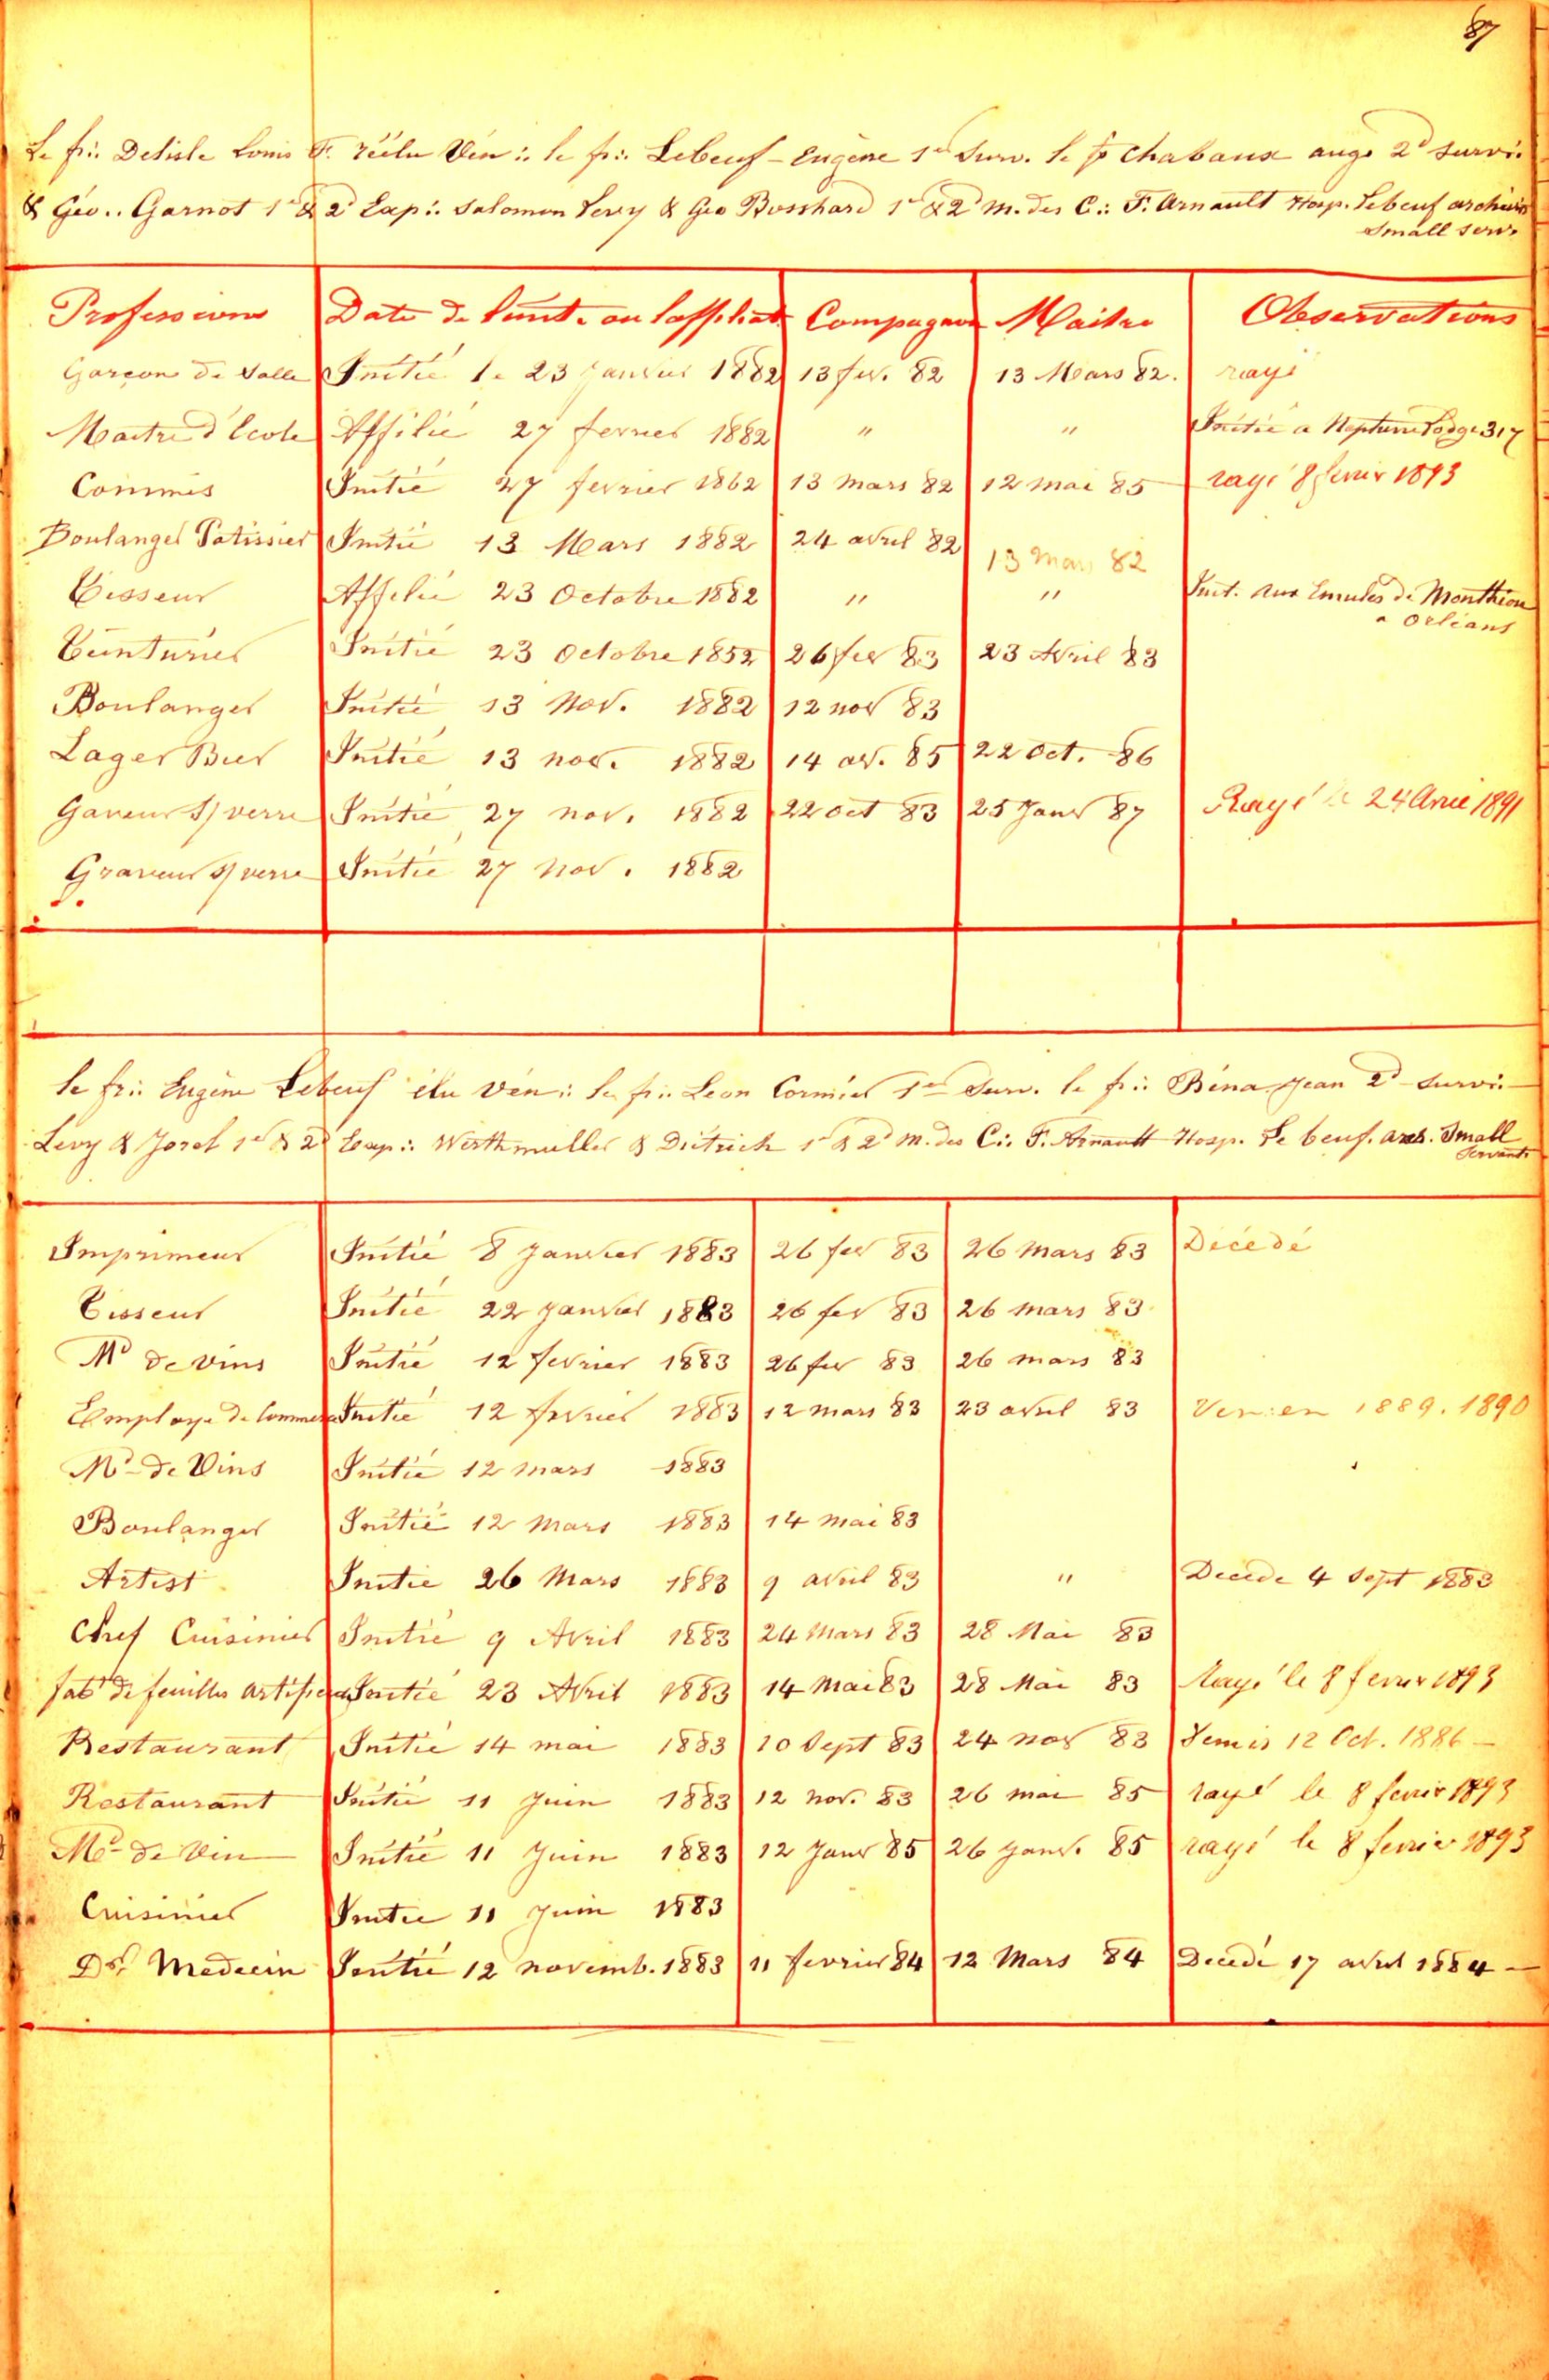 87
Le fr∴ Delisle Louis F. réélu Ven∴ le fr∴ Lebeuf-Eugène 1er Surv. le fr Chabaux ange 2d Surv∴
& Géo.. Garnot 1er & 2d Exp∴ Salomon Levy & Geo Bosshard 1er & 2d M. des C∴ F. Arnault Hosp. Lebeuf archivis
Small serv.
Professions Date de l'init. ou l'affiliat. Compagnon Maitre Observations
Garçon de Salle Initié le 23 Janvier 1882 13 fev. 82 13 Mars 82. rayé
Maitre d'école Affilié 27 fevrier 1882 " " Initié a Neptune Lodge 317
Commis Initié 27 fevrier 1862 13 mars 82 12 mai 85 rayé 8 fevrier 1893
Boulanger Patissier Initié 13 Mars 1882 24 avril 82 13 mars 82
Tisseur Affilié 23 Octobre 1882 " " Init. aux Emules de Monthion
a Orléans
Teinturier Initié 23 Octobre 1852 26 fev 83 23 Avril 83
Boulanger Initié 13 Nov. 1882 12 nov 83
Lager Bier Initié 13 nov. 1882 14 av. 85 22 Oct. 86
Gaveur s/ verre Initié 27 nov. 1882 22 oct 83 25 Janv 87 Rayé le 24 Avril 1891
Graveur s/ verre Initié 27 Nov. 1882
le fr∴ Eugène Lebeuf élu Ven∴ le fr∴ Leon Cormier 1er Surv. le fr∴ Béna Jean 2d Surv∴
Levy & Joret 1er & 2d Exp∴ Werthmuller & Dietrich 1er & 2d M. des C∴ F. Arnault Hosp. Le beuf. arch. Small
Servant
Imprimeur Initié 8 Janvier 1883 26 fev 83 26 mars 83 Décédé
Tisseur Initié 22 Janvier 1883 26 fev 83 26 mars 83
Md de vins Initié 12 fevrier 1883 26 fev 83 26 mars 83
Employé de Commerce Initié 12 fevrier 1883 12 mars 83 23 avril 83 Ven: en 1889. 1890
Md de Vins Initié 12 mars 1883
Boulanger Initié 12 mars 1883 14 mai 83
Artist Initié 26 Mars 1883 9 avril 83 " Décédé 4 Sept 1883
Chef Cuisinier Initié 9 Avril 1883 24 Mars 83 28 Mai 83
fabt de feuilles artificie Initié 23 Avril 1883 14 Mai 83 28 Mai 83 Rayé le 8 fevrier 1893
Restaurant Initié 14 mai 1883 10 Sept 83 24 nov 83 Demis 12 Oct. 1886
Restaurant Initié 11 Juin 1883 12 nov. 83 26 mai 85 rayé le 8 fevrier 1893
Md de Vin Initié 11 Juin 1883 12 Janv 85 26 Janv. 85 rayé le 8 fevrier 1893
Cuisinier Initié 11 Juin 1883
Dr. Medecin Initié 12 novemb. 1883 11 fevrier 84 12 Mars 84 Décédé 17 avril 1884